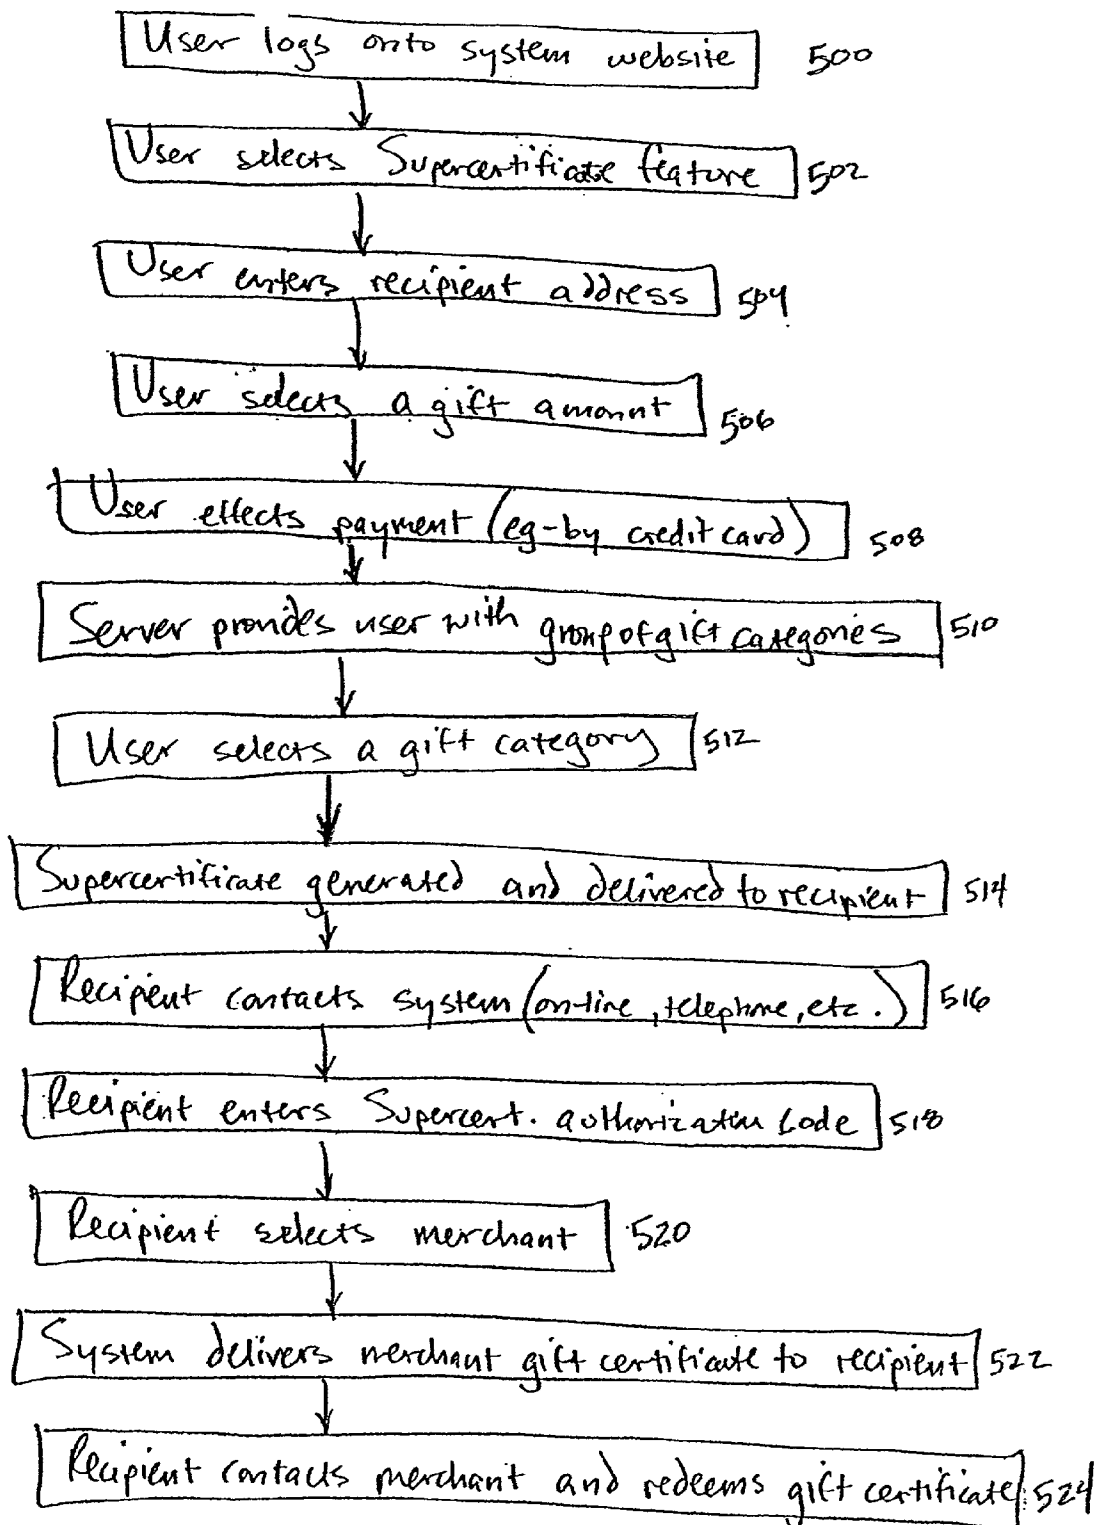 User logs onto system website 500
User selects Supercertificate feature 502
User enters recipient address 504
User selects a gift amount 506
User effects payment (eg-by credit card) 508
Server provides user with group of gift categories 510
User selects a gift category 512
Supercertificate generated and delivered to recipient 514
Recipient contacts system (on-line, telephone, etc.) 516
Recipient enters Supercert. authorization code 518
Recipient selects merchant 520
System delivers merchant gift certificate to recipient 522
Recipient contacts merchant and redeems gift certificate 524